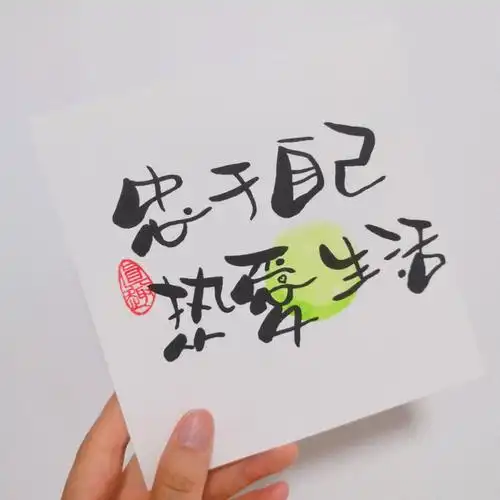 忠于自己
热爱生活